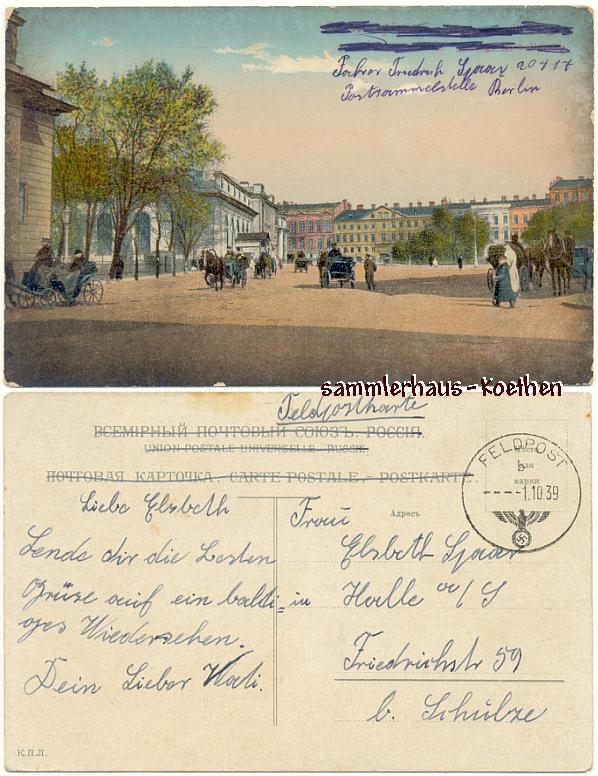 Fahrer Friedrich Spaar 20717
Postsammelstelle Berlin
sammlerhaus-Koethen
Feldpostkarte
ВСЕМІРНЫЙ ПОЧТОВЫЙ СОЮЗЪ. РОССІЯ.
UNION POSTALE UNIVERSELLE. RUSSIE.
ПОЧТОВАЯ КАРТОЧКА. CARTE POSTALE. POSTKARTE.
Мѣсто
для
марки
FELDPOST
b
-1.10.39
Liebe Elsbeth
Sende dir die besten
Grüse auf ein baldi=
ges Wiedersehen.
Dein Lieber Vati.
Адресъ.
Frau
Elsbeth Spaar
in Halle a/S
Friedrichstr 59
b. Schulze
К.П.Л.